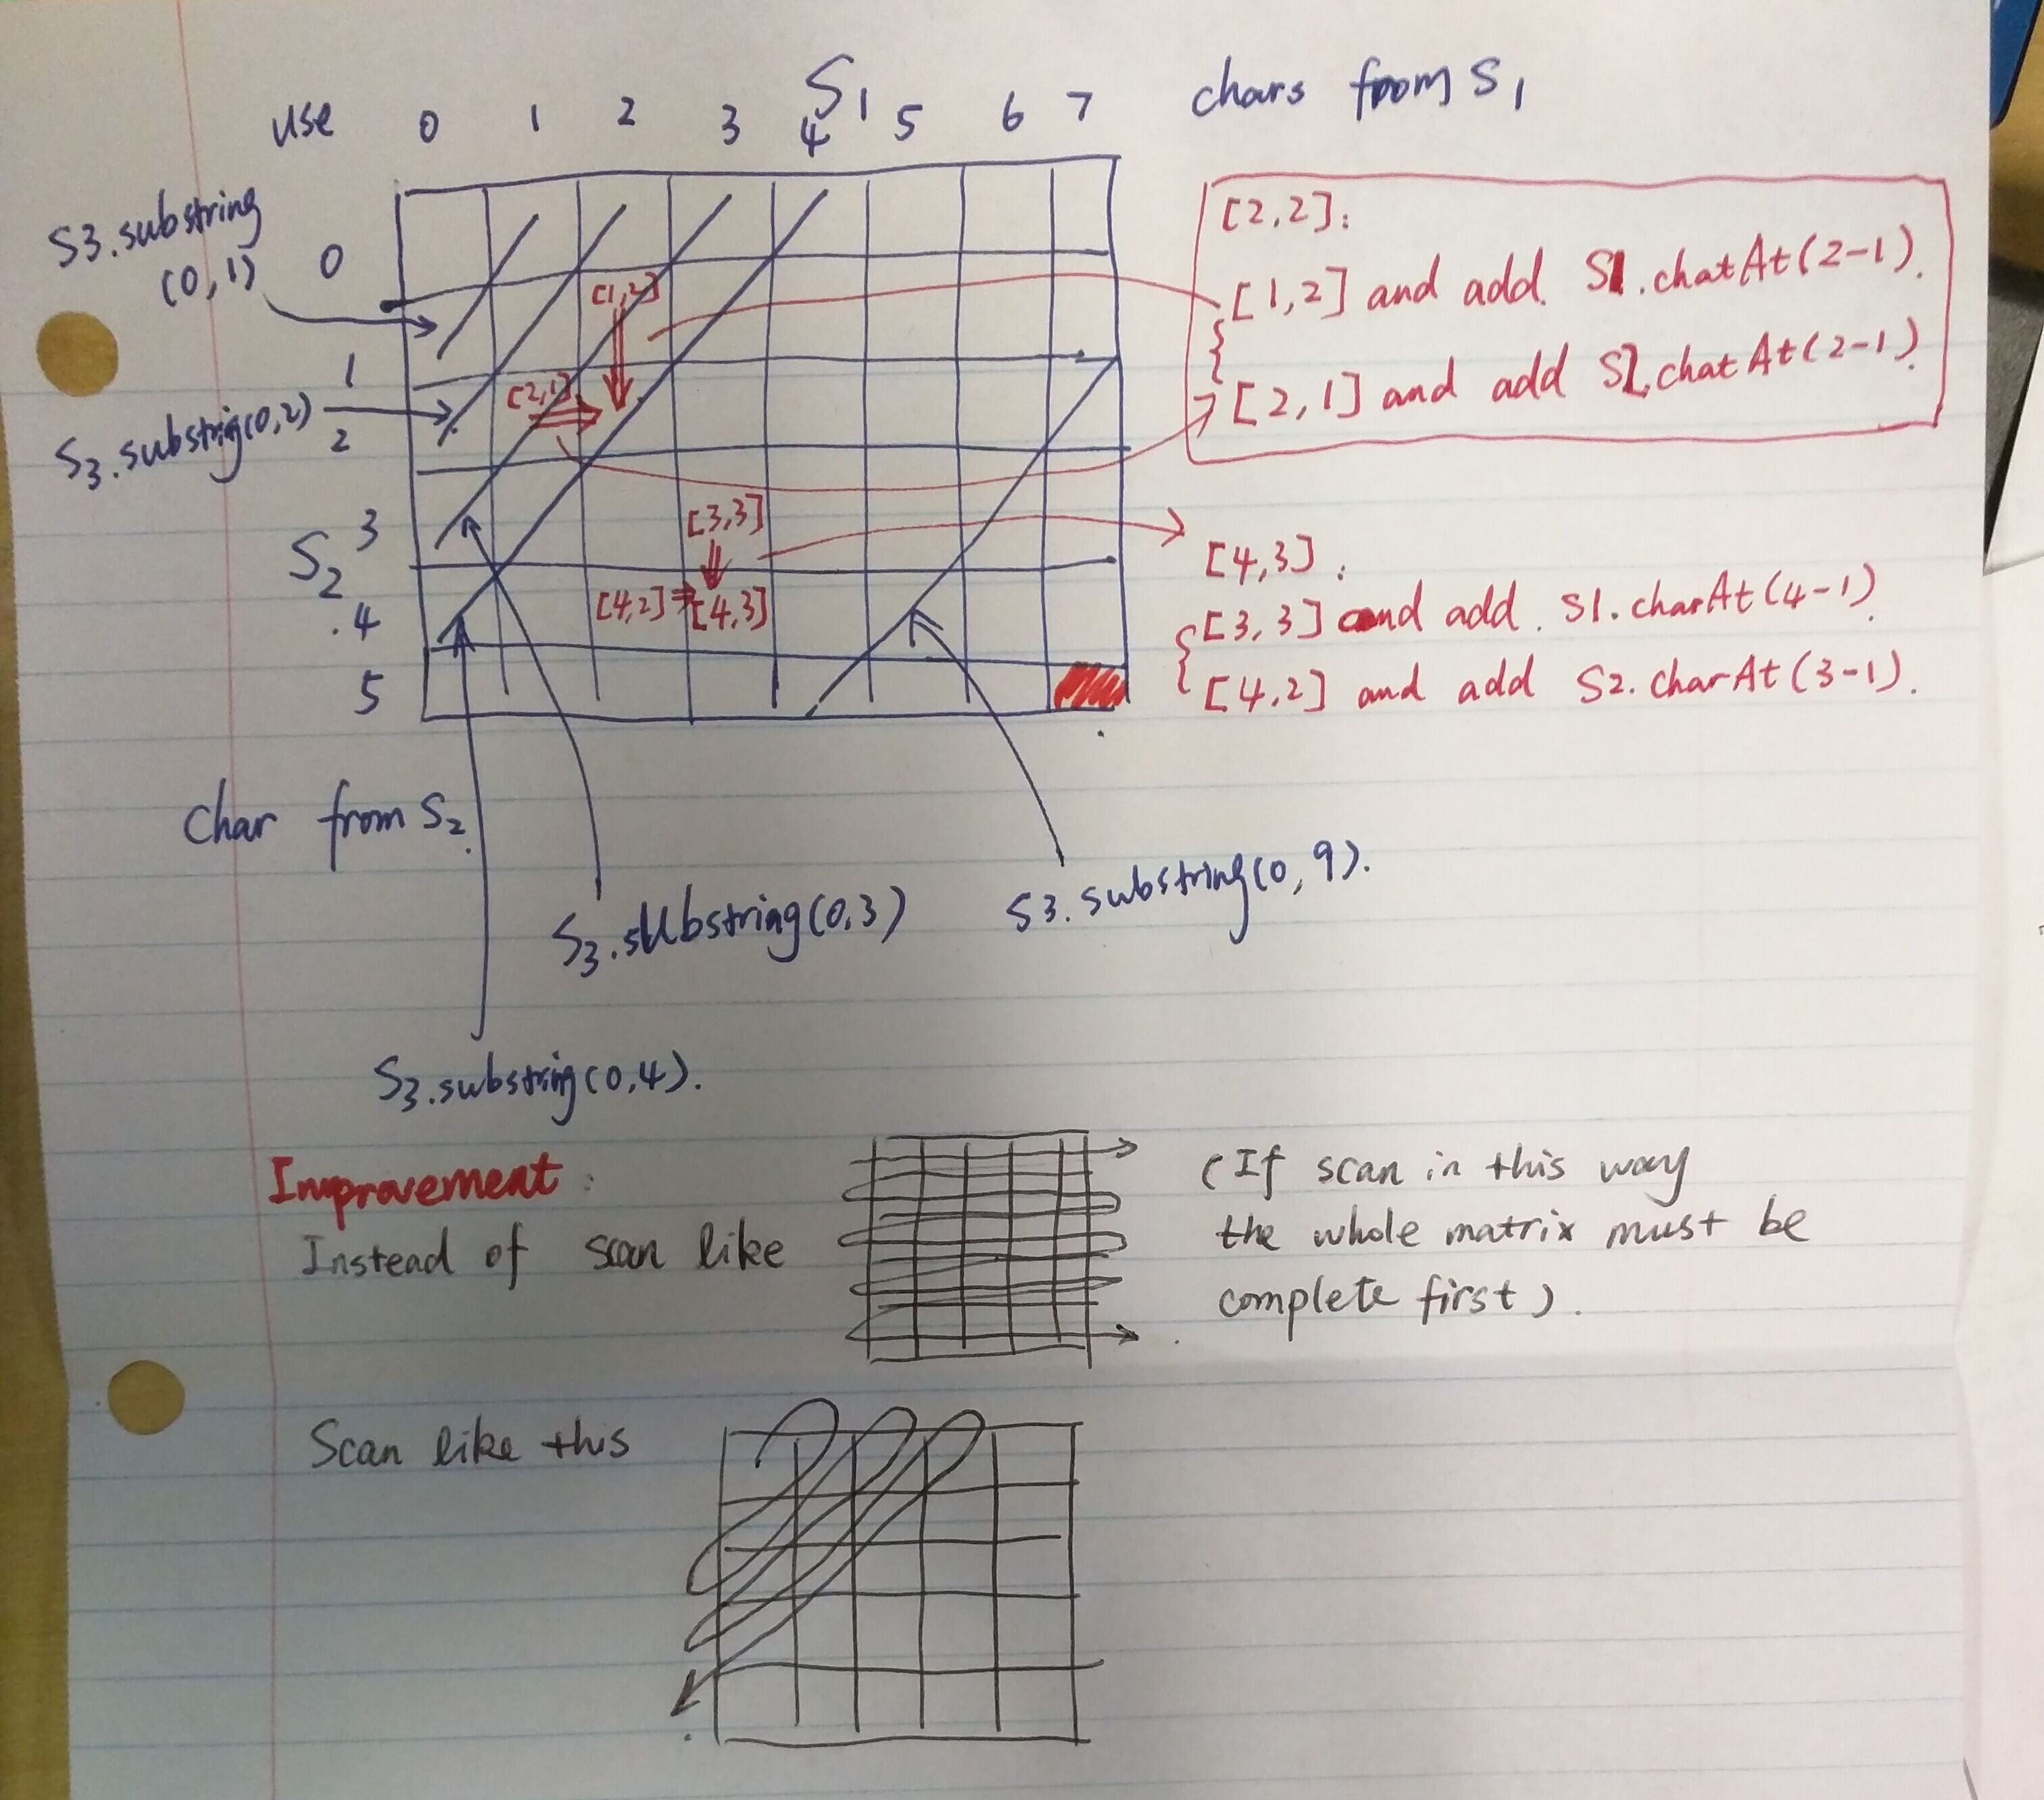 S1
use 0 1 2 3 4 5 6 7 chars from S1
S3.substring
(0,1)
0
1
S3.substrig(0,2)
2
3
S2
.4
5
[1,2]
[2,1]
[3,3]
[4,2]⇒[4,3]
[2,2]:
[1,2] and add. S1.chatAt(2-1).
[2,1] and add S2.chatAt(2-1)
[4,3]:
[3,3] and add. S1.charAt(4-1)
[4,2] and add S2.charAt(3-1).
Char from S2.
S3.substring(0,3)
S3.substring(0,9).
S3.substring(0,4).
Improvement:
Instead of scan like
(If scan in this way
the whole matrix must be
complete first).
Scan like this